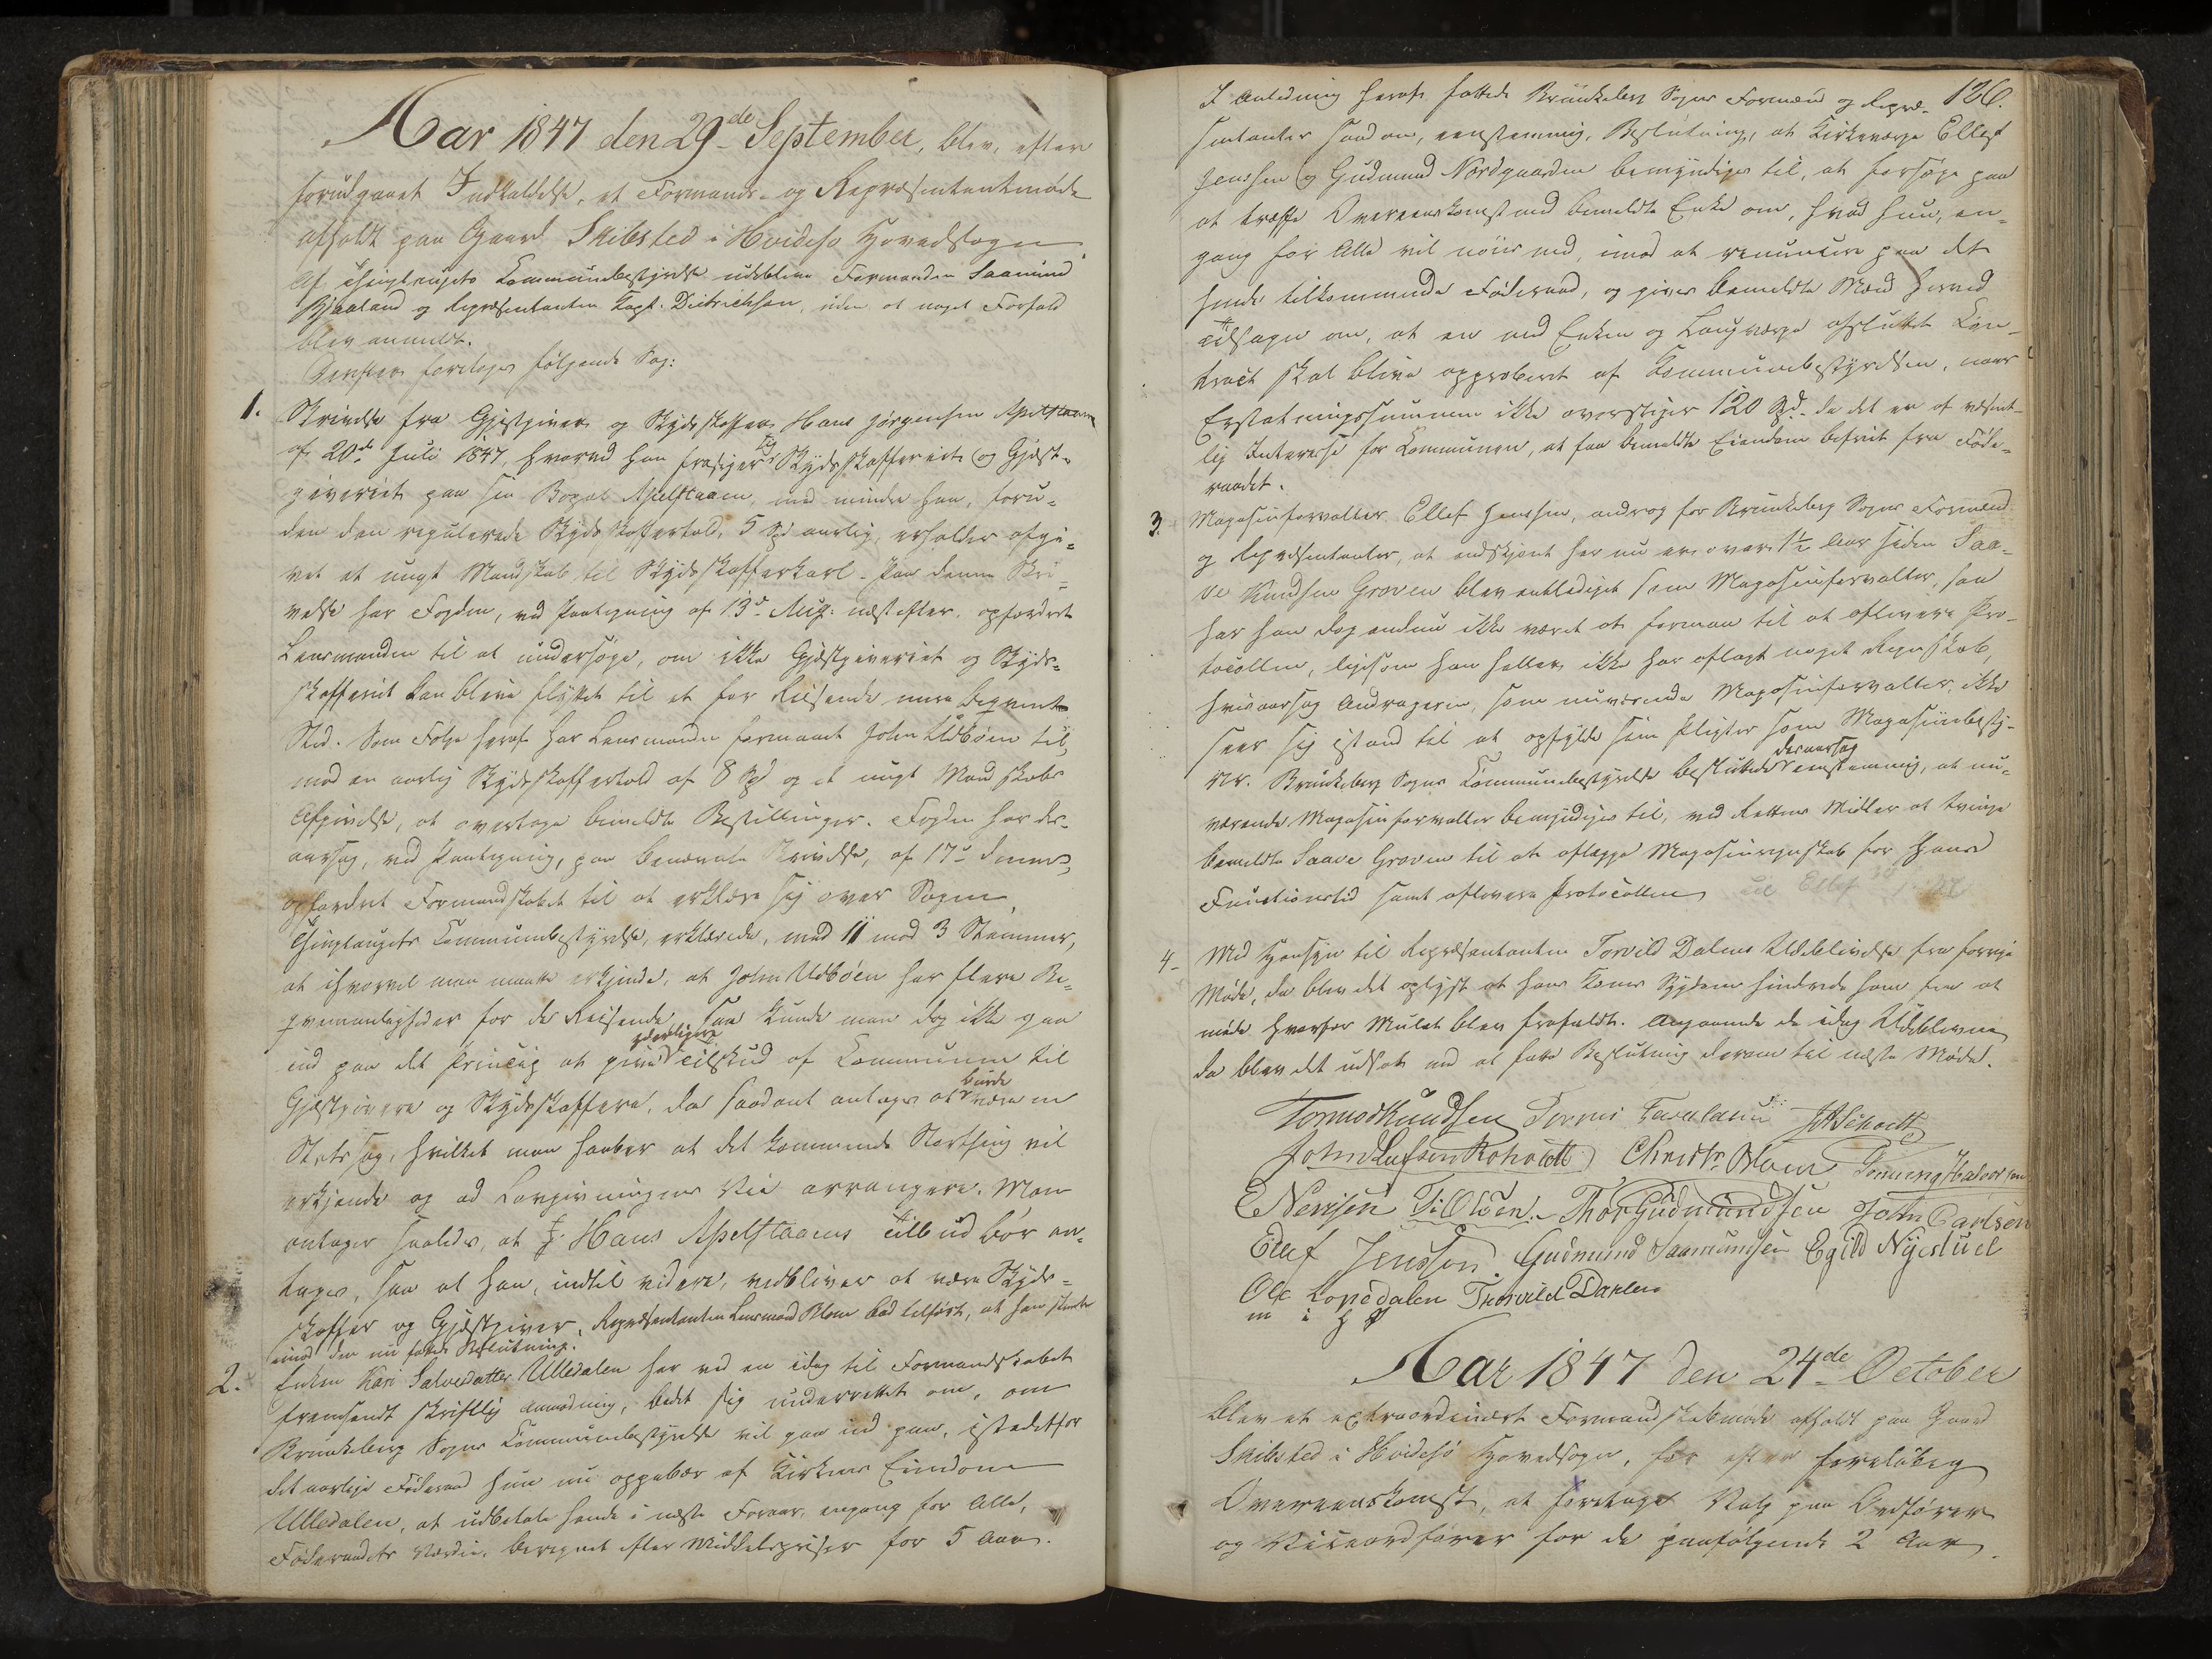 Aar 1847 den 29de September, blev, efter
forudgaaet Indkaldelse, et Formands- og Repræsentantmøde
afholdt paa Gaard Skibsted i Hvidesø Hovedsogn.
Af Thinglaugets Communebestyrelse udebleve Formanden Saamund
Bjaaland og Repræsentanten Capt. Dietrichson, uden at noget Forfald
blev anmeldt.
Derefter foretoges følgende Sag:
1. Skrivelse fra Gjæstgiver og Skydsskaffer Hans Jørgensen Apelstaaen
af 20de Juli 1847, hvorved han frasiger sig Skydsskafferiet og Gjæst-
giveriet paa sin Bopæl Apelstaaen, med mindre han, foru-
den den regulerede Skydsskaffertold, 5 Spd aarlig, erholder afgi-
vet et nygt Mandskab til Skydsskafferkarl. Paa denne Skri-
velse har Fogden, ved Paategning af 13de Aug. næstefter, opfordret
Lensmanden til at undersøge, om ikke Gjæstgiveriet og Skyds-
skafferiet kan blive flyttet til et for Reisende mere beqvemt
Sted. Som Følge heraf har Lensmanden formaaet John Udbøen til,
mod en aarlig Skydsskaffertold af 8 Spd og et nygt Mandskabs
Afgivelse, at overtage bemeldte Bestillinger. Fogden har der-
aarsag, ved Paategning, paa benævnte Skrivelse, af 17de dennes,
opfordret Formandskabet til at erklære sig over Sagen.
Thinglaugets Communebestyrelse, erklærede, med 11 mod 3 Stemmer,
at ihvorvel man maatte erkjende, at John Udbøen har flere Be-
qvemmeligheder for de Reisende, saa kunde man dog ikke gaa
ind paa det Princip at give yderligere Tilskud af Communen til
Gjæstgivere og Skydsskaffere, da saadant antages at burde være en
Statssag, hvilket man haaber at det kommende Storthing vil
erkjende og ad Lovgivningens Vei arrangere. Man
antager saaledes, at Hans Apelstaaens Tilbud bør an-
tages, saa at han, indtil videre, vedbliver at være Skyds-
skaffer og Gjæstgiver. Repræsentanten Lensmand Blom bad tilført, at han stemte
imod den nu fattede Beslutning.
2. Enken Kari Salvesdatter Ulledalen har ved en idag til Formandskabet
fremsendt skriftlig Anmodning, bedet sig underrettet om, om
Brunkeberg Sogns Communebestyrelse vil gaa ind paa, istedetfor
det aarlige Føderaad hun nu oppebær af Kirkens Eiendom
Ulledalen, at udbetale hende i næste Foraar, engang for Alle,
Føderaadets Værdie, beregnet efter Middelspriser for 5 Aar.
126.
I Anledning heraf fattede Brunkeberg Sogns Formænd og Repræ-
sentanter saadan, eenstemmig, Beslutning, at Kirkeværge Ellef
Jenssen og Gudmund Nordgaarden bemyndiges til, at forsøge paa
at træffe Overeenskomst med bemeldte Enke om, hvad hun, en-
gang for Alle vil nøies med, imod at renuncere paa det
hende tilkommende Føderaad, og gives bemeldte Mænd herved
Tilsagn om, at en med Enken og Laugværge afsluttet Con-
tract skal blive approberet af Communebestyrelsen, naar
Erstatningssummen ikke overstiger 120 Spd. da det er af væsent-
lig Interesse for Communen, at faa bemeldte Eiendom befriet fra Føde-
raadet.
3. Magasinforvalter Ellef Jenssen, androg for Brunkeberg Sogns Formænd
og Repræsentanter, at endskjønt her nu er over 1½ Aar siden Saa-
ve Knudsen Groven blev entlediget som Magasinforvalter, saa
har han dog endnu ikke været at formaa til at aflevere Pro-
tocollen, ligesom han heller ikke har aflagt noget Regnskab,
hvisaarsag Andrageren, som nuværende Magasinforvalter, ikke
seer sig istand til at opfylde sine Pligter som Magasinbesty-
rer. Brunkeberg Sogns Communebestyrelse besluttede deraarsag eenstemmig, at nu-
værende Magasinforvalter bemyndiges til, ved Rettens Midler at tvinge
bemeldte Saave Groven til at aflægge Magasinregnskab for hans
Functionstid samt aflevere Protocollen
4. Med Hensyn til Repræsentanten Torvild Dalens Udeblivelse fra forrige
Møde, da blev det oplyst at hans Kones Sygdom hindrede ham fra at
møde hvorfor Mulct blev frafaldt. Angaaende de idag Udeblevne
da blev det udsat med at fatte Beslutning derom til næste Møde.
Tormod Knudsen JASchodt
John Leifsen Rohooldt Christn Blom Tonning Halvorsen
E Nenseen T. Olsen Thor Gudmundsen John Carlsen
Ellef Jensson Gudmund Saamundsen Egild Nyestuel
Ole Lonedalen Thorvild Dahlen
m i H P
Aar 1847 den 24de October
blev et extraordinært Formandskabsmøde afholdt paa Gaard
Skibsted i Hvidesø Hovedsogn, for efter foreløbig
Overeenskomst, at foretage Valg paa Ordfører
og Viceordfører for de paafølgende 2 Aar.